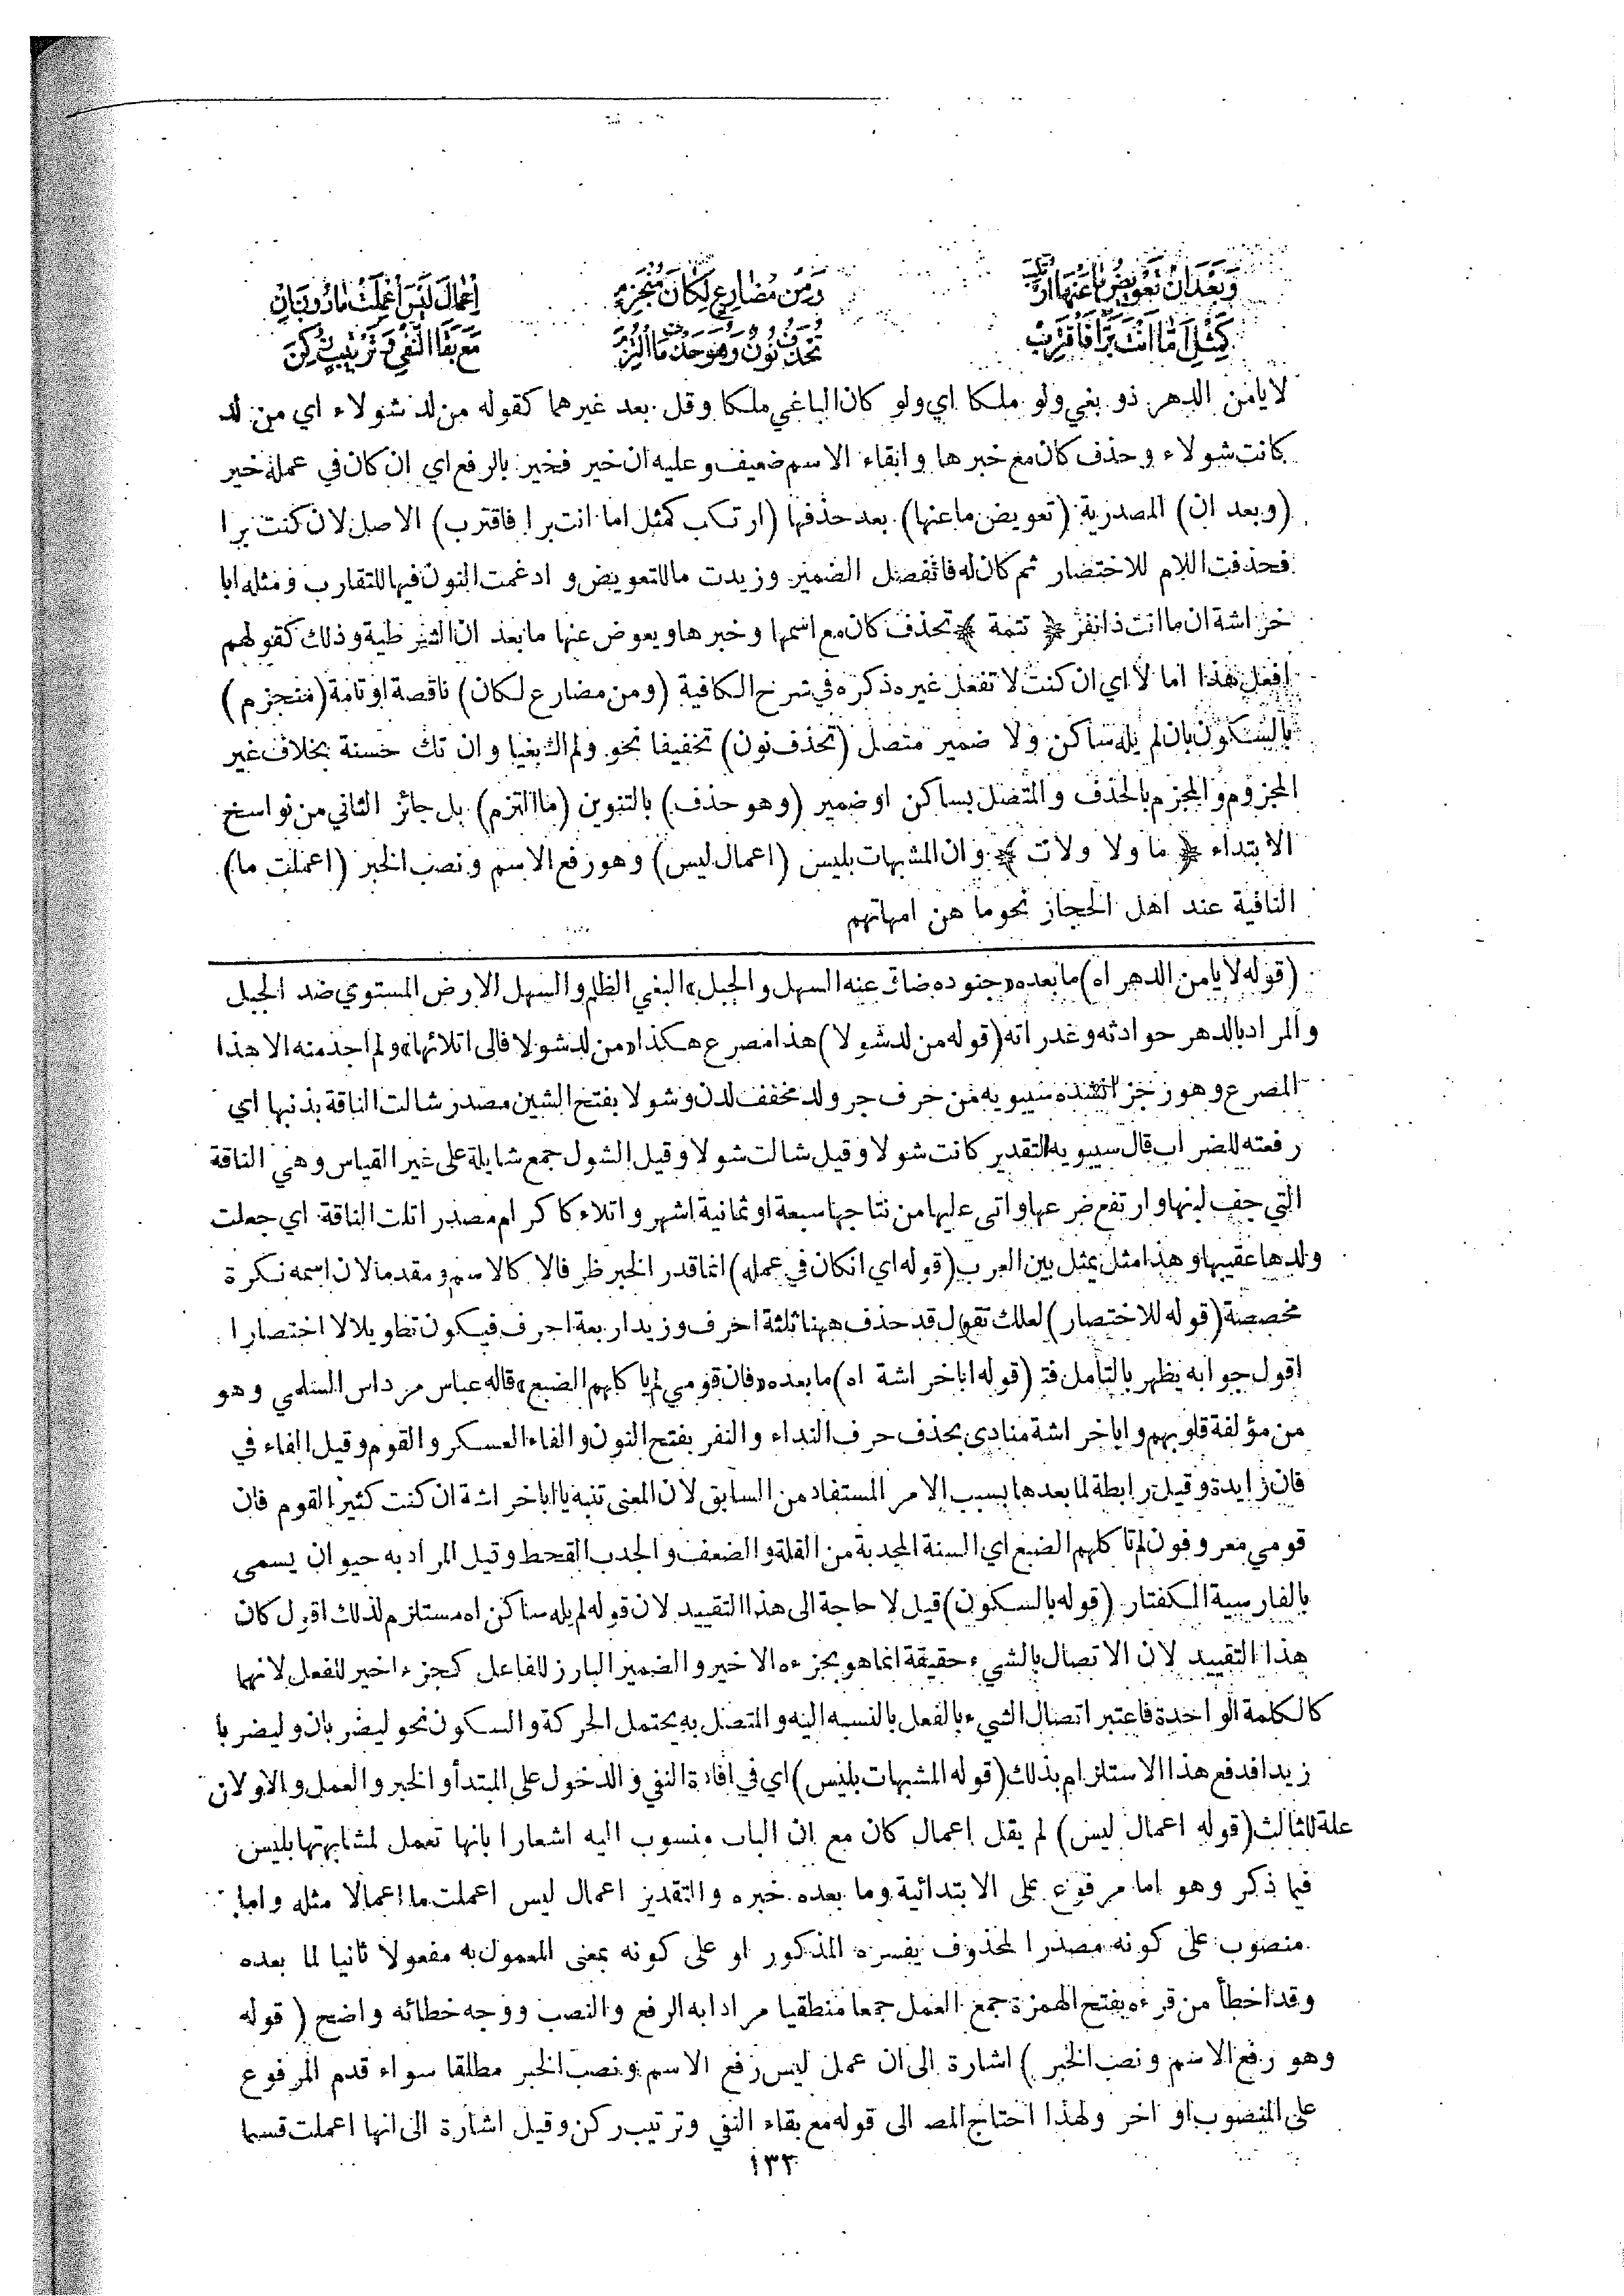 وَبَعْدَ اَنْ تَعْوِيضُ مَا عَنْهَا ارْتُكِبْ
كَمِثْلِ اَمَّا اَنْتَ بَرًّا فَاقْتَرِبْ
وَمِنْ مُضَارِعٍ لِكَانَ مُنْجَزِمْ
تُحْذَفُ نُونٌ وَهُوَ حَذْفٌ مَا الْتُزِمْ
اِعْمَالَ لَيْسَ اُعْمِلَتْ مَا دُونَ اِنْ
مَعَ بَقَا النَّفْيِ وَتَرْتِيبٍ زُكِنَ
لا يامن الدهر ذو بغي ولو ملكا اي ولو كان الباغي ملكا وقل بعد غيرهما كقوله من لد شولاء اي من لد
كانت شولاء وحذف كان مع خبرها وابقاء الاسم ضعيف وعليه ان خير فخير بالرفع اي ان كان في عمله خير
(وبعد ان) المصدرية (تعويض ما عنها) بعد حذفها (ارتكب كمثل اما انت برا فاقترب) الاصل لان كنت برا
فحذفت اللام للاختصار ثم كان له فانفصل الضمير وزيدت ما للتعويض وادغمت النون فيها للتقارب ومثله ابا
خراشة ان ما انت ذا نفر ﴿ تتمة ﴾ تحذف كان مع اسمها وخبرها ويعوض عنها ما بعد ان الشرطية وذلك كقولهم
افعل هذا اما لا اي ان كنت لا تفعل غيره ذكره في شرح الكافية (ومن مضارع لكان) ناقصة او تامة (منجزم)
بالسكون بان لم يله ساكن ولا ضمير متصل (تحذف نون) تخفيفا نحو ولم اك بغيا وان تك حسنة بخلاف غير
المجزوم والمجزم بالحذف والمتصل بساكن او ضمير (وهو حذف) بالتنوين (ما التزم) بل جائز الثاني من نواسخ
الابتداء ﴿ ما ولا ولات ﴾ وان المشبهات بليس (اعمال ليس) وهو رفع الاسم ونصب الخبر (اعملت ما)
النافية عند اهل الحجاز نحو ما هن امهاتهم
(قوله لا يامن الدهر اه) ما بعده «جنوده ضاق عنه السهل والجبل» البغي الظلم والسهل الارض المستوي ضد الجبل
والمراد بالدهر حوادثه وغدراته (قوله من لد شولا) هذا مصرع هكذا «من لد شولا فالى اتلائها» ولم اجد منه الا هذا
المصرع وهو رجز انشده سيبويه من حرف جر ولد مخفف لدن وشولا بفتح الشين مصدر شالت الناقة بذنبها اي
رفعته للضراب قال سيبويه التقدير كانت شولا وقيل شالت شولا وقيل الشول جمع شايلة على غير القياس وهي الناقة
التي جف لبنها وارتفع ضرعها واتى عليها من نتاجها سبعة او ثمانية اشهر واتلاء كاكرام مصدر اتلت الناقة اي جعلت
ولدها عقيبها وهذا مثل يمثل بين العرب (قوله اي انكان في عمله) انما قدر الخبر ظرفا لا كالاسم ومقدما لان اسمه نكرة
مخصصة (قوله للاختصار) لعلك تقول قد حذف ههنا ثلثة احرف وزيد اربعة احرف فيكون تطويلا لا اختصارا
اقول جوابه يظهر بالتأمل فتـ (قوله ابا خراشة اه) ما بعده «فان قومي لم ياكلهم الضبع» قاله عباس مرداس السلمي وهو
من مؤلفة قلوبهم وابا خراشة منادى بحذف حرف النداء والنفر بفتح النون والفاء العسكر والقوم وقيل الفاء في
فان زايدة وقيل رابطة لما بعدها بسبب الامر المستفاد من السابق لان المعنى تنبه يا ابا خراشة ان كنت كثير القوم فان
قومي معروفون لم تاكلهم الضبع اي السنة المجدبة من القلة والضعف والجدب القحط وقيل المراد به حيوان يسمى
بالفارسية الكفتار (قوله بالسكون) قيل لا حاجة الى هذا التقييد لان قوله لم يله ساكن اه مستلزم لذلك اقول كان
هذا التقييد لان الاتصال بالشيء حقيقة انما هو بجزءه الاخير والضمير البارز للفاعل كجزء اخير للفعل لانهما
كالكلمة الواحدة فاعتبر اتصال الشيء بالفعل بالنسبه اليه والمتصل به يحتمل الحركة والسكون نحو ليضربان وليضربا
زيدا فدفع هذا الاستلزام بذلك (قوله المشبهات بليس) اي في افادة النفي والدخول على المبتدأ والخبر والعمل والاولان
علة للثالث (قوله اعمال ليس) لم يقل اعمال كان مع ان الباب منسوب اليه اشعارا بانها تعمل لمشابهتها بليس
فيما ذكر وهو اما مرفوع على الابتدائية وما بعده خبره والتقدير اعمال ليس اعملت ما اعمالا مثله واما
منصوب على كونه مصدرا لمحذوف يفسره المذكور او على كونه بمعنى المعمول به مفعولا ثانيا لما بعده
وقد اخطأ من قرءه بفتح الهمزة جمع العمل جمعا منطقيا مرادا به الرفع والنصب ووجه خطائه واضح (قوله
وهو رفع الاسم ونصب الخبر) اشارة الى ان عمل ليس رفع الاسم ونصب الخبر مطلقا سواء قدم المرفوع
على المنصوب او اخر ولهذا احتاج المصـ الى قوله مع بقاء النفي وترتيب ركن وقيل اشارة الى انها اعملت قسما
١٣٢